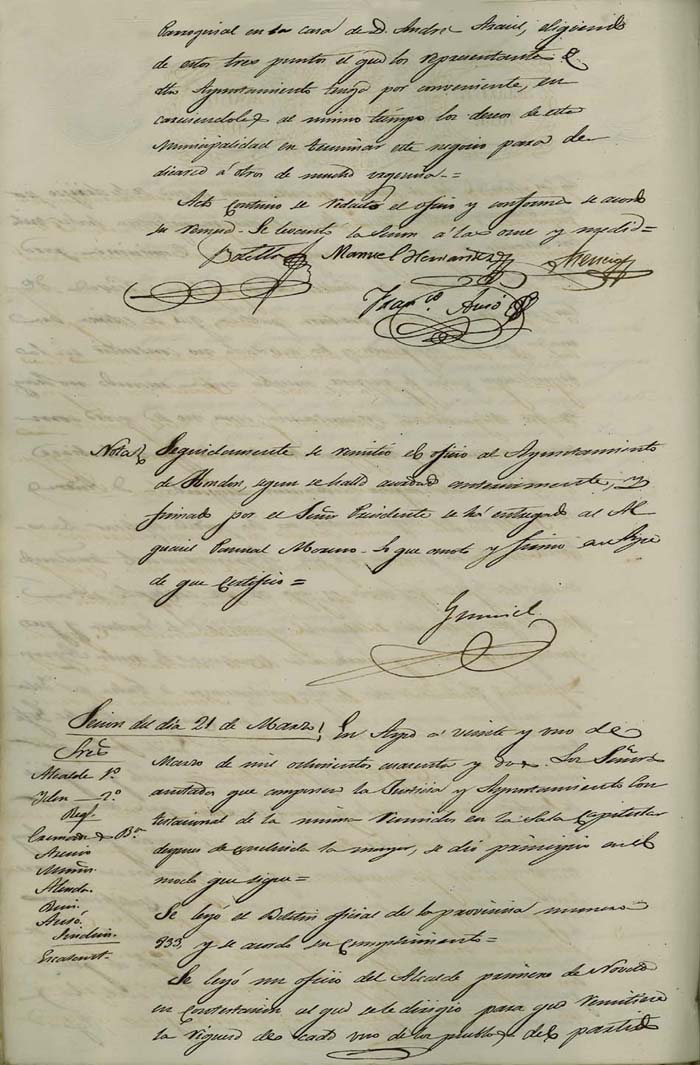 Parroquial en la casa de D. Andres Araüil, eligiendo
de estos tres puntos el que los representantes
Ayuntamiento tenga por conveniente, en
careciendoles al mismo tiempo los deseos de esta
Municipalidad en terminar este negocio para de
dicarse á otros de mucha urgencia.=
Acto continuo se redactó el oficio y conforme se acordó
su remesa. Se levantó la sesion á las once y media=
Botella Manuel Hernandez Asencio
Fran.co Ausó
Nota Seguidamente se remitio el oficio al Ayuntamiento
de Hondon, segun se halla acordado anteriormente, y
firmado por el Señor Presidente se há entregado al Al
guacil Pascual Moreno. Lo que anoto y firmo en Aspe
de que Certifico=
Gumiel
Sesion del dia 21 de Marzo En Aspe á veinte y uno de
Sres
Marzo de mil ochocientos cuarenta y dos. Los Señores
Alcalde 1º
anotados que componen la Justicia y Ayuntamiento Con
Idem 2º
titucional de la misma reunidos en la Sala Capitular
Reg.s
despues de la mayor, se dió principio en el
modo que sigue=
Asencio
Almodo.
Ausó
Sindico
Se leyó el Boletin oficial de la provincia numero
933, y se acordó su cumplimiento=
Se leyó un oficio del Alcalde primero de Novelda
en contestacion al que se le dirigio para que remitiese
la de cada uno de los pueblos del partido